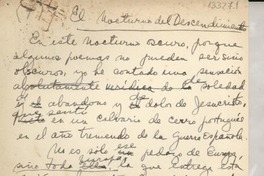 El Nocturno del Descendimiento
En este nocturno oscuro, porque
algunos poemas no pueden ser sino
obscuros, yo he contado una sensación
absolutamente de soledad
abandono y de dolor de Jesucristo,
que sentí en un calvario de cerro portugués
en el año tremendo de la Guerra Española.
No es sólo ese pedazo de Europa,
sino toda la que entrega esta